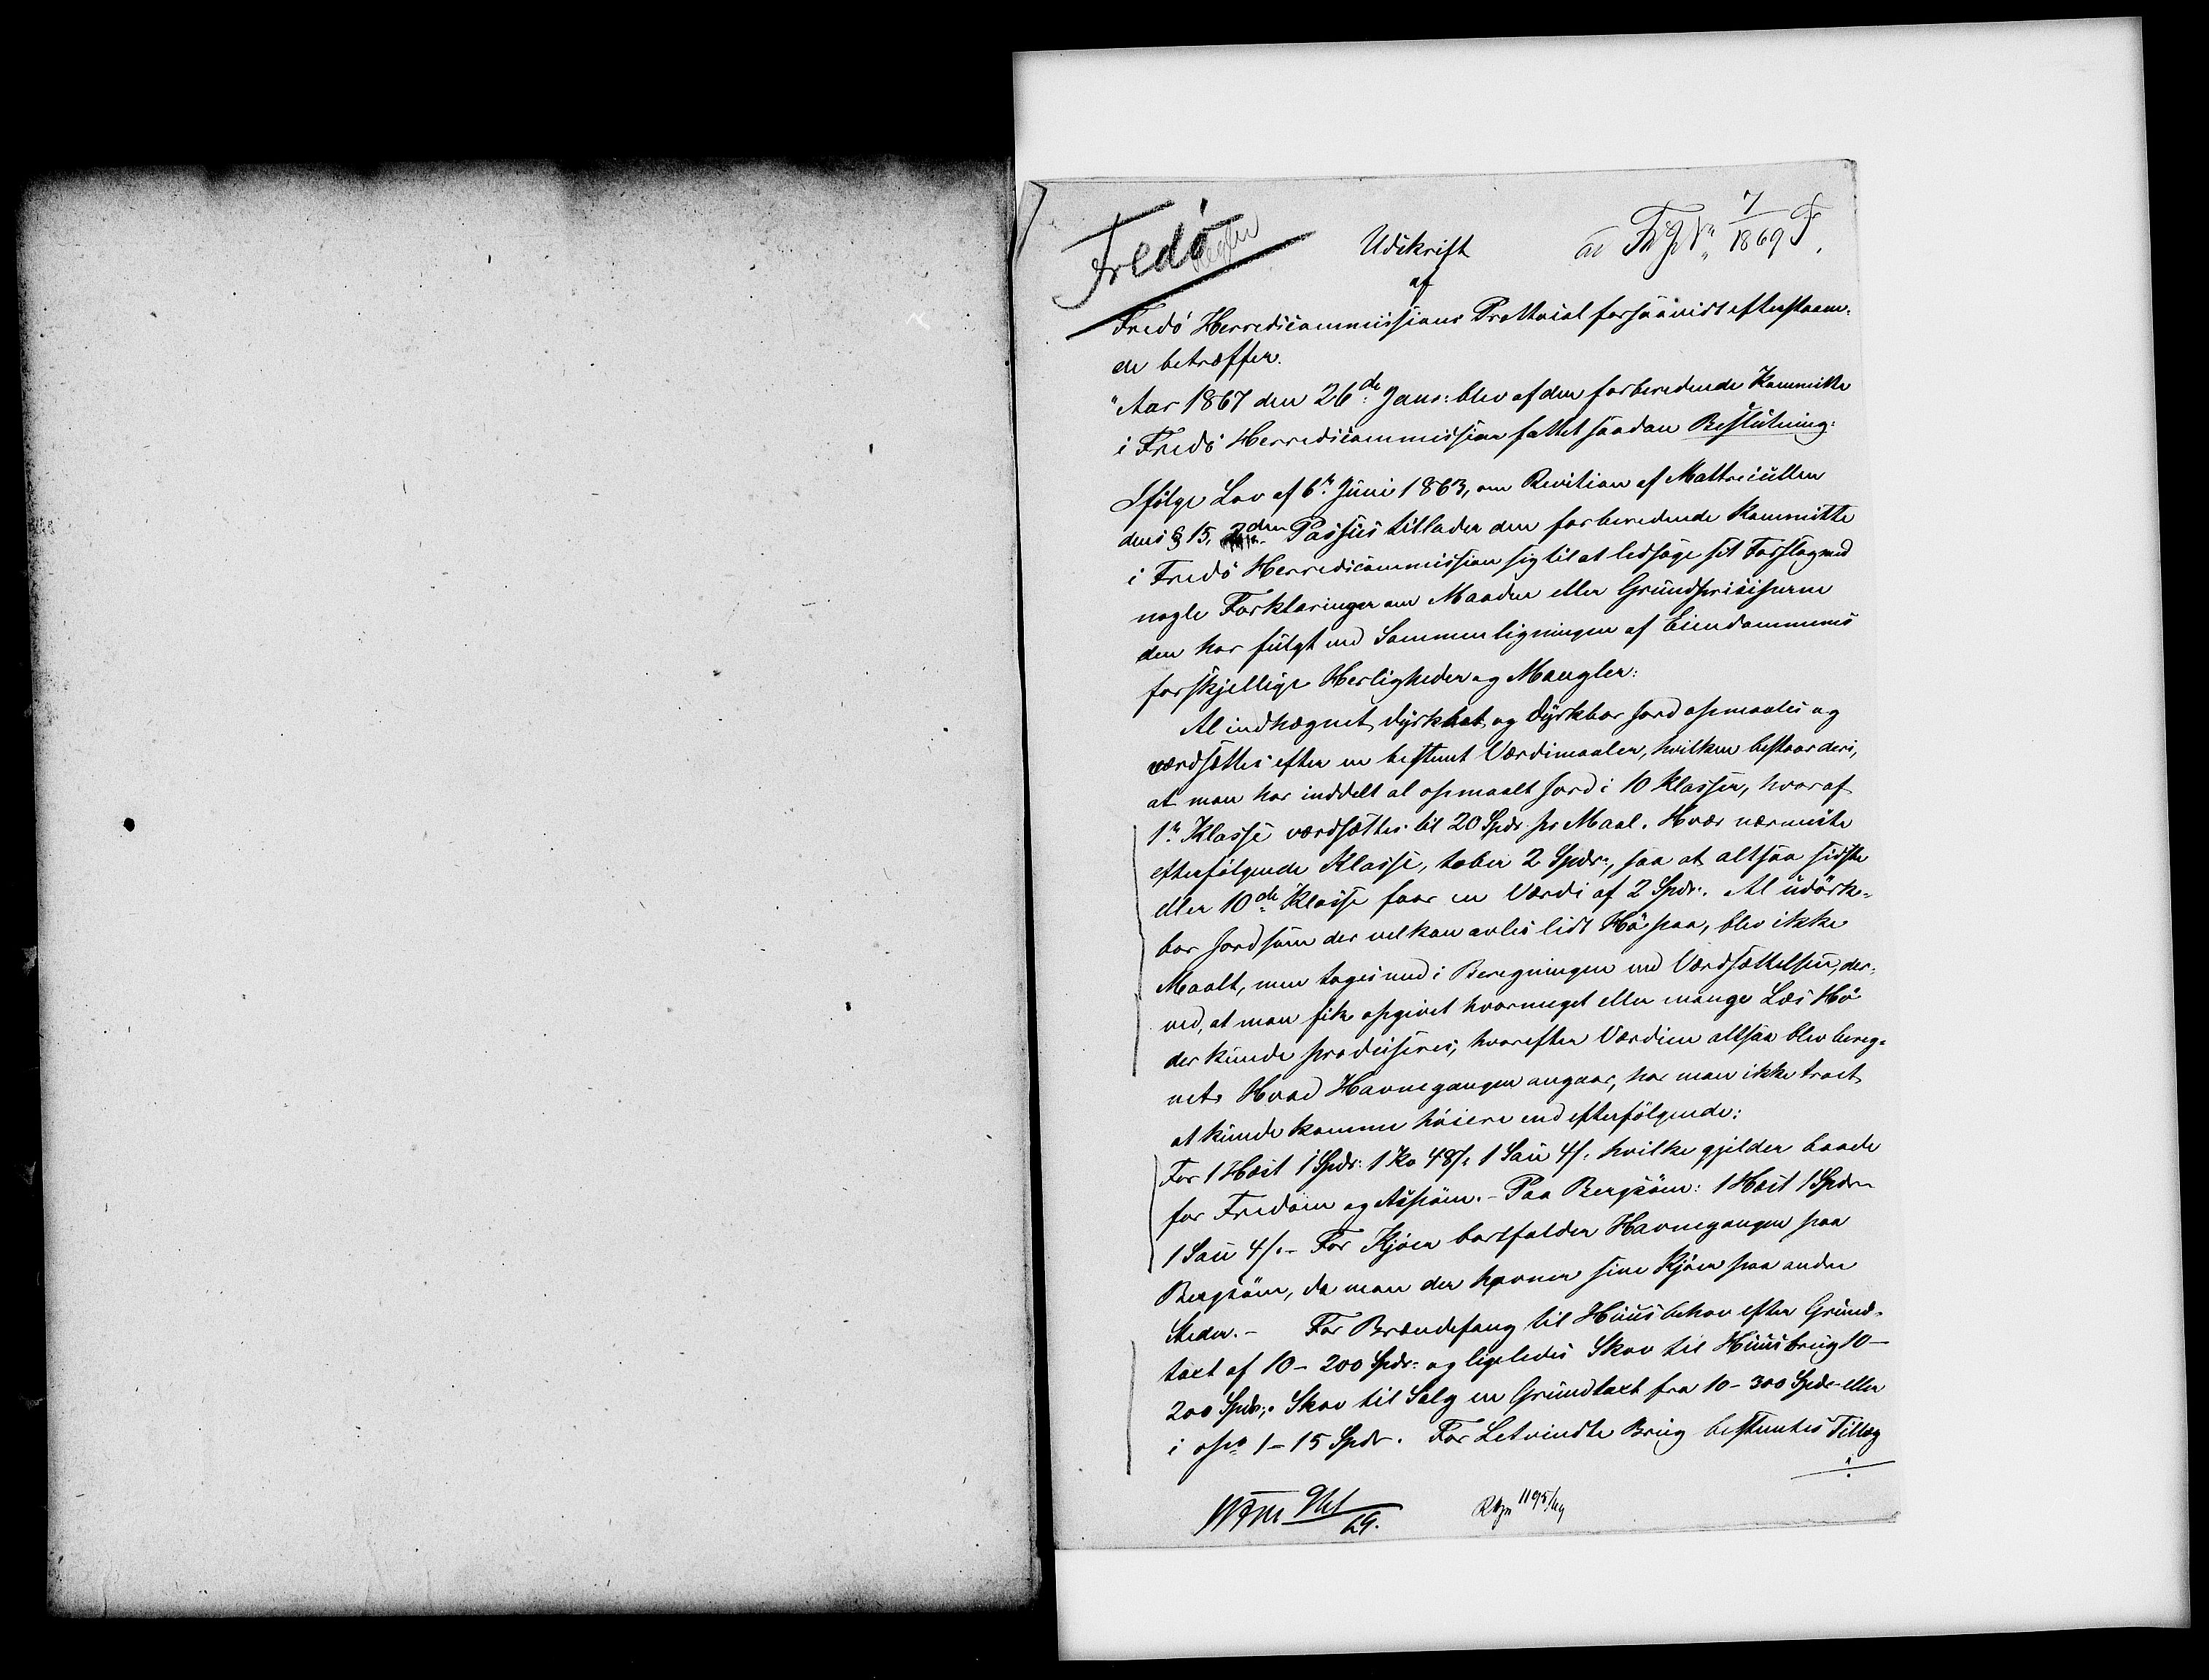 Fredö
Udskrift
af
7/1869 F.
Fredö Herredscommissions Prottocol forsaavidt efterstaaen-
de betræffer.
"Aar 1867 den 26de Janr: blev af den forberedende Kommitte
i Fredö Herredscommission fattet saadan Beslutning:
Ifølge Lov af 6te Juni 1863, om Revition af Mattricullen
dens § 15, 2den Passus tillader den forberedende Kommitte
i Fredö Herredscommission sig til at ledsage sit Forslag med
nogle Forklaringer om Maaden eller Grundprinsiperne
den har fulgt ved Sammenligningen af Eiendommens
forskjellige Herligheder og Mangler:
Al indhægnet dyrkbat og dyrkbar Jord opmaales og
værdsættes efter en bestemt Værdimaaler, hvilken bestaar deri,
at man har inddelt al opmaalt Jord i 10 Klasser, hvoraf
1te Klasse værdsættes til 20 Spdr pr Maal. Hver nærmeste
efterfølgende Klasse, taber 2 Spdr:, saa at altsaa sidste
eller 10de Klasse faar en Værdi af 2 Spdr:. Al udørk-
bar Jord som der vel kan avles lidt Hö paa, blev ikke
Maalt, men toges med i Beregningen ved Værdsættelsen, der-
ved, at man fik opgivet hvormeget eller mange Læs Hö
der kunde produseres, hvorefter Værdien altsaa blev bereg-
net. Hvad Havnegangen angaar, har man ikke troet
at kunde komme höiere end efterfölgende:
For 1 Hest 1 Spdr: 1 Ko 48/: 1 Sau 4/: hvilke gjelder baade
for Fredöen og Aspöen. - Paa Bergsöen: 1 Hest 1 Spdr
1 Sau 4/. - For Kjöer bortfalder Havnegangen paa
Bergsöen, da man der havner sine Kjöer paa andre
Steder. - For Brændefang til Huusbehov efter Grund-
taxt af 10 - 200 Spdr: og ligeledes Skov til Huusbrug 10 -
200 Spdr:. Skov til Salg en Grundtaxt fra 10 - 300 Spdr eller
i  1 - 15 Spdr. For Letvindte Brug bestemtes Tillæg
69.
1195/69